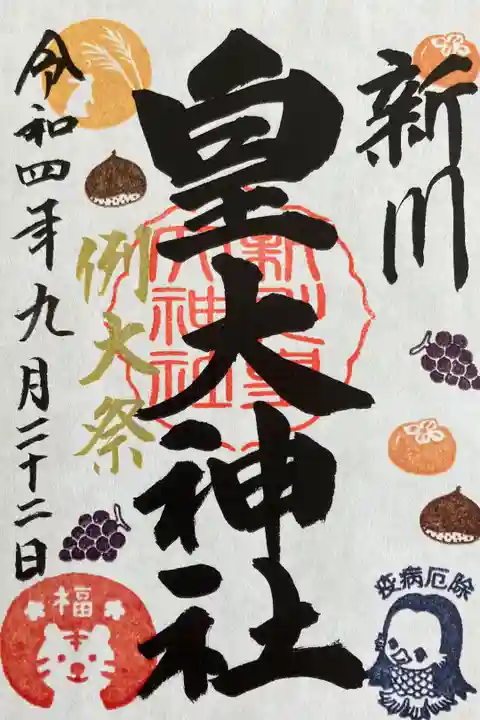 新川
皇大神社
例大祭
令和四年九月二十二日
疫病厄除
福